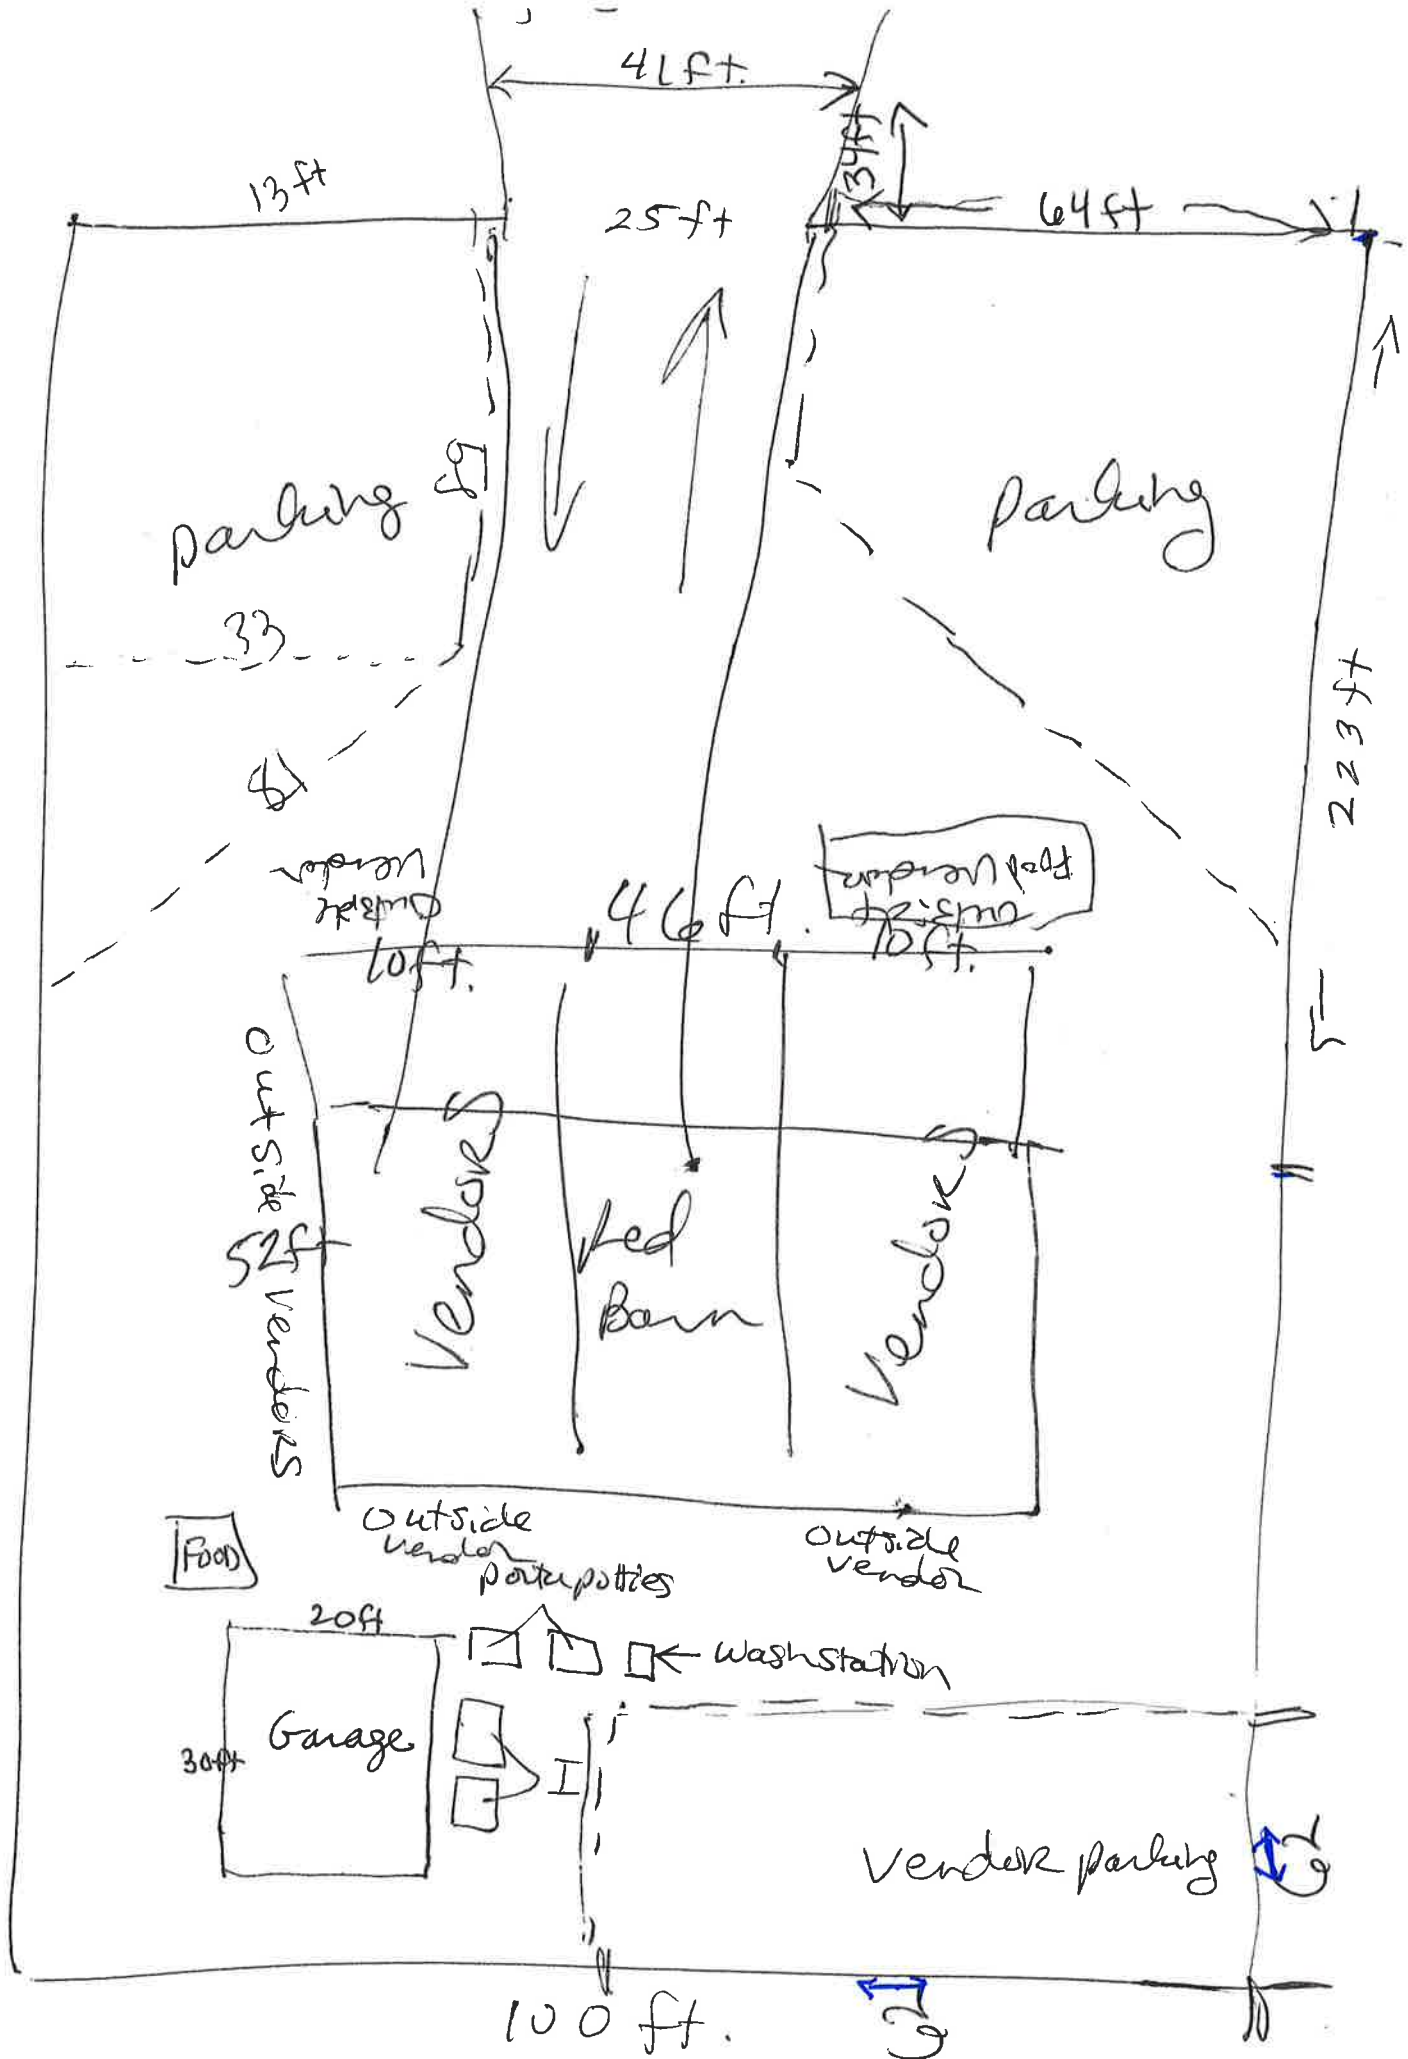 41ft.
34ft
13ft
25ft
64ft
parking
59
parking
33
81
223 ft
Outside
Vendor
Food Vendor
outside
46 ft.
10ft.
10ft.
5
outside
52ft
vendors
Vendors
Red
Barn
Vendors
Outside
vendor
Outside
vendor
FOOD
portapotties
20ft
← Washstation
Garage
30ft
I
Vendor parking
100 ft.